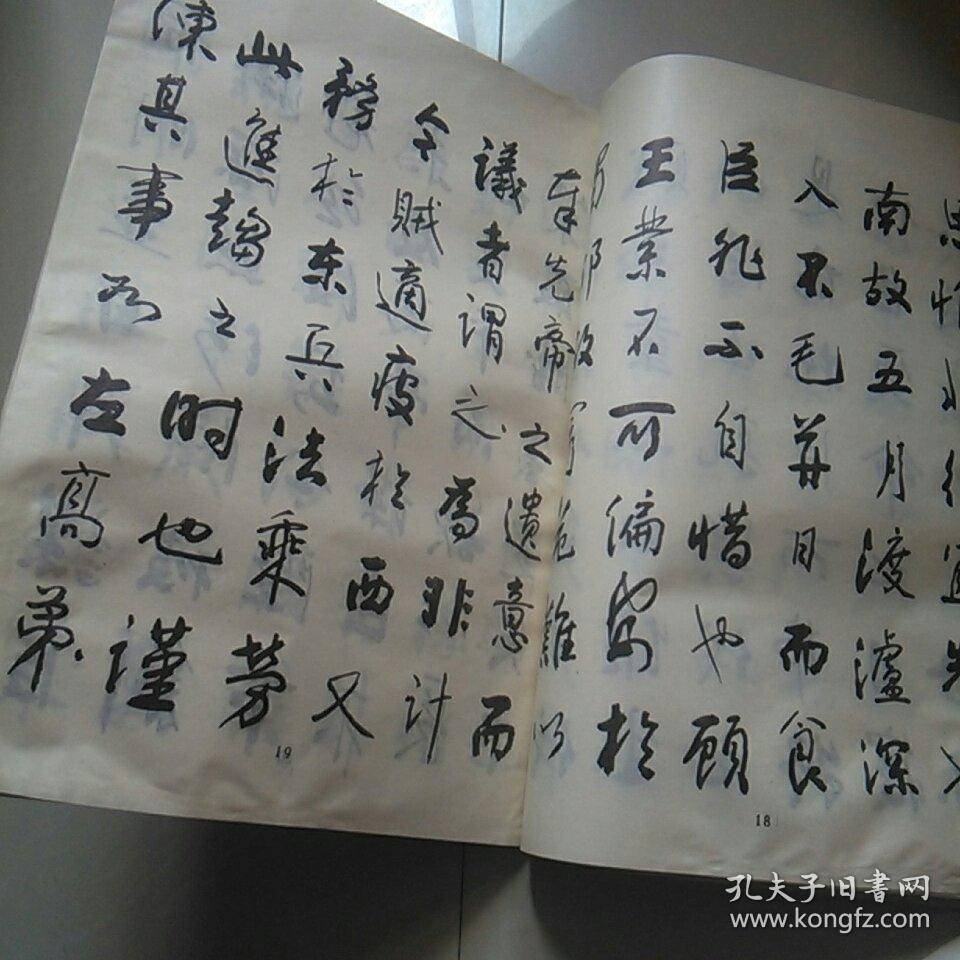 思惟北征宜先入
南故五月渡瀘深
入不毛并日而食
臣非不自惜也顧
王業不可偏安於
蜀都故冒危難以
奉先帝之遺意而
議者謂之為非計
今賊適疲於西又
務於东兵法乘劳
此進趨之时也謹
陳其事如左高弟
18
19
孔夫子旧书网
www.kongfz.com